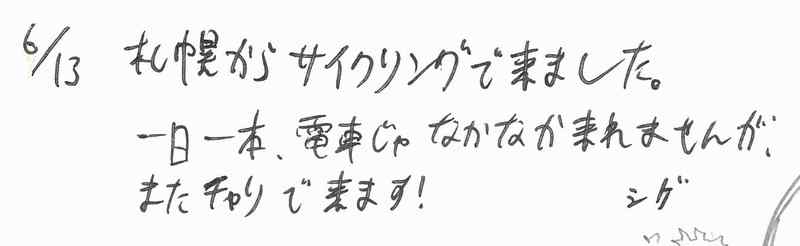 6/13 札幌からサイクリングで来ました。
一日一本、電車じゃなかなか来れませんが、
またチャリで来ます!
シゲ